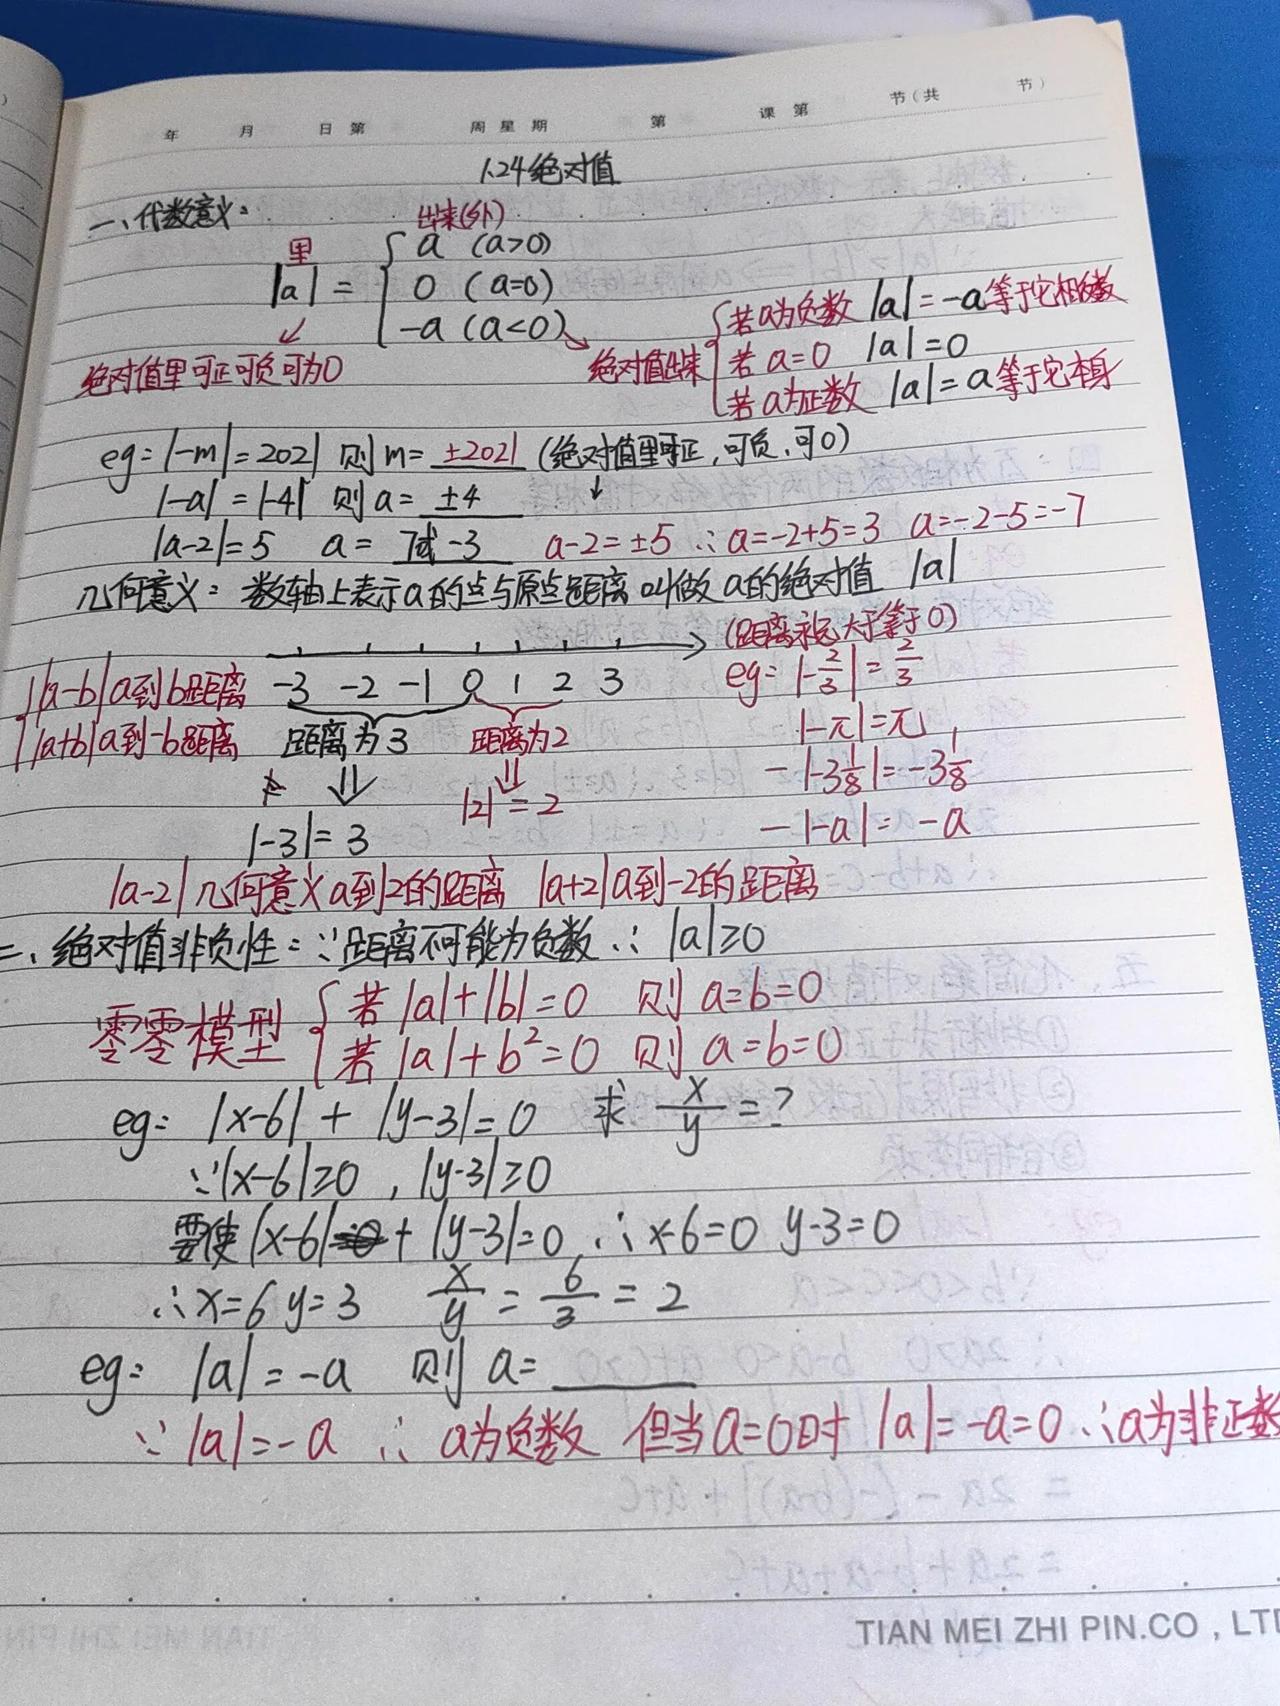 年 月 日 第 周 星 期 第 课 第 节(共 节)
1.24绝对值
一、代数意义:
里 出来(外)
|a| = { a (a>0)
0 (a=0)
-a (a<0)
绝对值里可正可负可为0
绝对值出来 { 若a为负数 |a|=-a等于它相反数
若 a=0 |a|=0
若a为正数 |a|=a等于它本身
eg: |-m|=2021 则m= ±2021 (绝对值里可正,可负,可0)
|-a|=|-4| 则a= ±4
|a-2|=5 a= 7或-3 a-2=±5 ∴a=-2+5=3 a=-2-5=-7
几何意义: 数轴上表示a的点与原点距离叫做a的绝对值 |a|
(距离永远大于等于0)
{ |a-b|a到b距离
|a+b|a到-b距离
-3 -2 -1 0 1 2 3
距离为3 距离为2
|-3|=3
|2|=2
eg: |-2/3|=2/3
|-π|=π
-|-3 1/8|=-3 1/8
-|-a|=-a
|a-2|几何意义a到2的距离 |a+2|a到-2的距离
二、绝对值非负性: ∵距离不可能为负数 ∴ |a|≥0
零零模型 { 若|a|+|b|=0 则 a=b=0
若|a|+b²=0 则 a=b=0
eg: |x-6| + |y-3|=0 求 x/y =?
∵|x-6|≥0 , |y-3|≥0
要使|x-6| + |y-3|=0 ∴x-6=0 y-3=0
∴x=6 y=3 x/y = 6/3 = 2
eg: |a|=-a 则 a=
∵ |a|=-a ∴ a为负数 但当a=0时 |a|=-a=0 ∴a为非正数
TIAN MEI ZHI PIN.CO , LTD